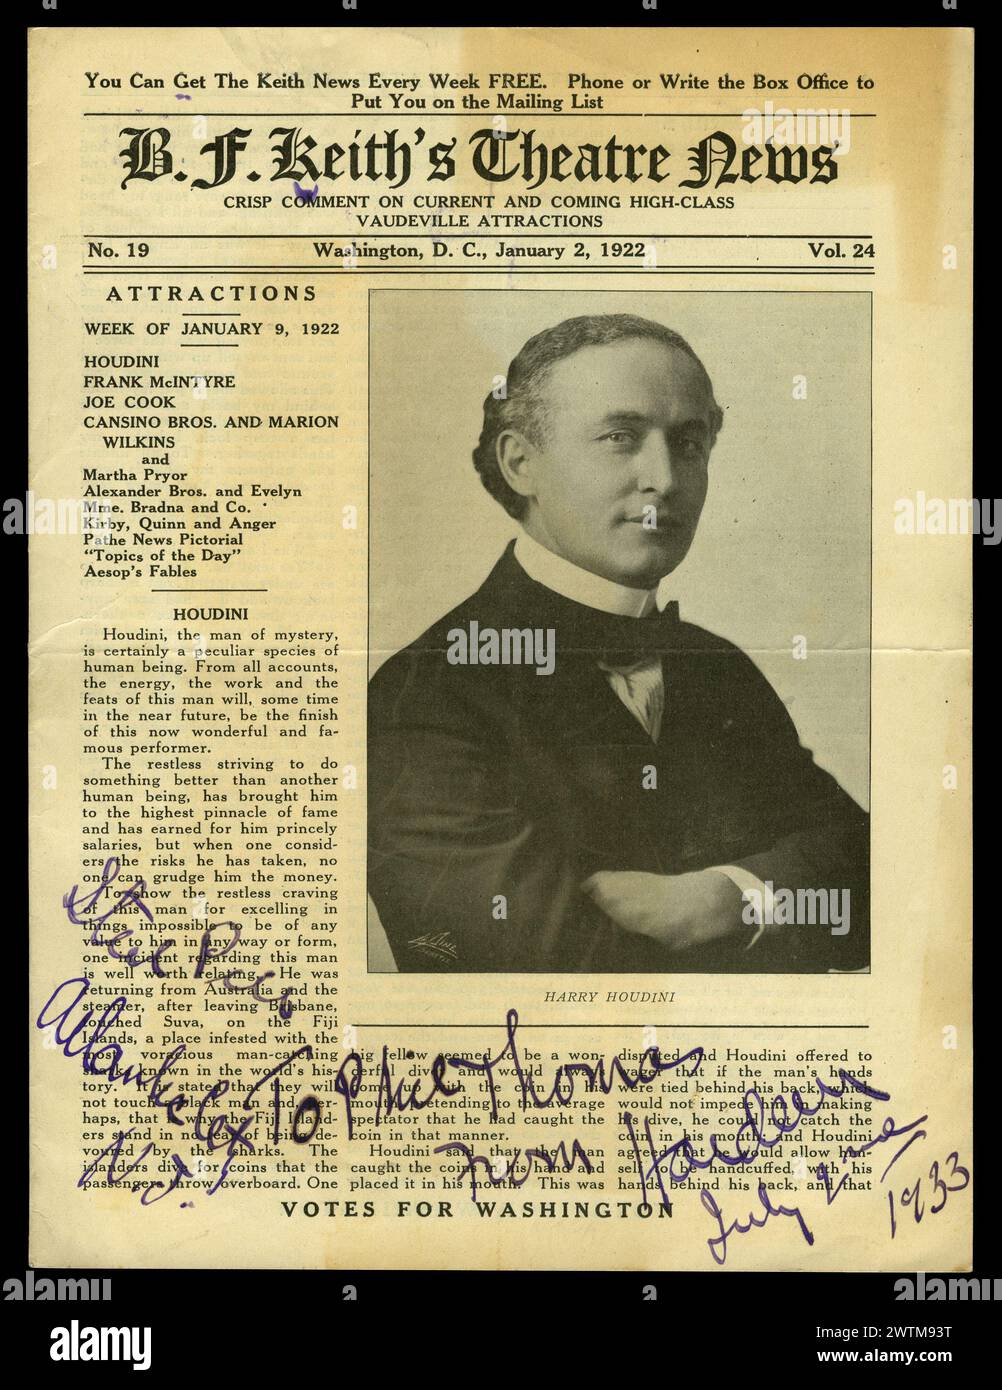 You Can Get The Keith News Every Week FREE. Phone or Write the Box Office to
Put You on the Mailing List
B. F. Keith's Theatre News
CRISP COMMENT ON CURRENT AND COMING HIGH-CLASS
VAUDEVILLE ATTRACTIONS
No. 19 Washington, D. C., January 2, 1922 Vol. 24
ATTRACTIONS
WEEK OF JANUARY 9, 1922
HOUDINI
FRANK McINTYRE
JOE COOK
CANSINO BROS. AND MARION
WILKINS
and
Martha Pryor
Alexander Bros. and Evelyn
Mme. Bradna and Co.
Kirby, Quinn and Anger
Pathe News Pictorial
"Topics of the Day"
Aesop's Fables
HOUDINI
Houdini, the man of mystery,
is certainly a peculiar species of
human being. From all accounts,
the energy, the work and the
feats of this man will, some time
in the near future, be the finish
of this now wonderful and fa-
mous performer.
The restless striving to do
something better than another
human being, has brought him
to the highest pinnacle of fame
and has earned for him princely
salaries, but when one consid-
ers the risks he has taken, no
one can grudge him the money.
To show the restless craving
of this man for excelling in
things impossible to be of any
value to him in any way or form,
one incident regarding this man
is well worth relating. He was
returning from Australia and the
steamer, after leaving Brisbane,
touched Suva, on the Fiji
Islands, a place infested with the
most voracious man-catching
sharks known in the world's his-
tory. It is stated that they will
not touch a black man and, per-
haps, that is why the Fiji Island-
ers stand in no fear of being de-
voured by the sharks. The
islanders dive for coins that the
passengers throw overboard. One
HARRY HOUDINI
big fellow seemed to be a won-
derful diver and would always
come up with the coin in his
mouth, pretending to the average
spectator that he had caught the
coin in that manner.
Houdini said that the man
caught the coins in his hand and
placed it in his mouth. This was
disputed and Houdini offered to
wager that if the man's hands
were tied behind his back, which
would not impede him in making
his dive, he could not catch the
coin in his mouth; and Houdini
agreed that he would allow him-
self to be handcuffed, with his
hands behind his back, and that
VOTES FOR WASHINGTON
Steel Pier
Atlantic City
N.J.
To Thoma
from Hardeen
July 2
1933
alamy
Image ID: 2WTM93T
www.alamy.com